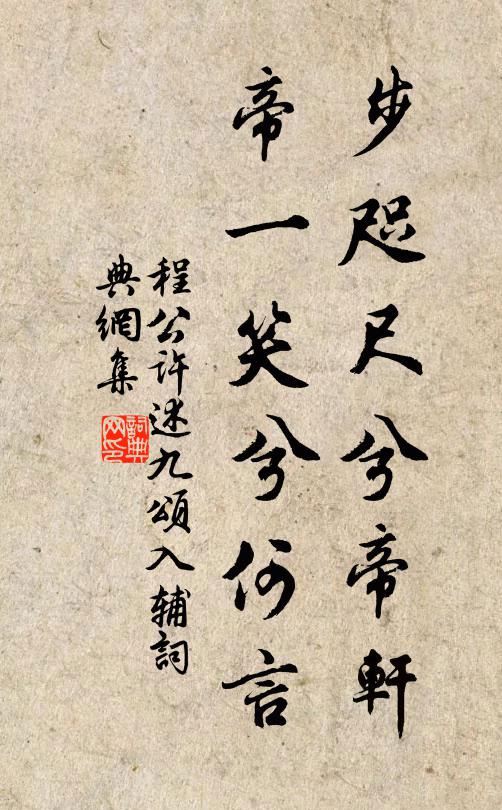 步咫尺兮帝軒
帝一笑兮何言
程公許述九頌入輔詞
典網集
詞典網印